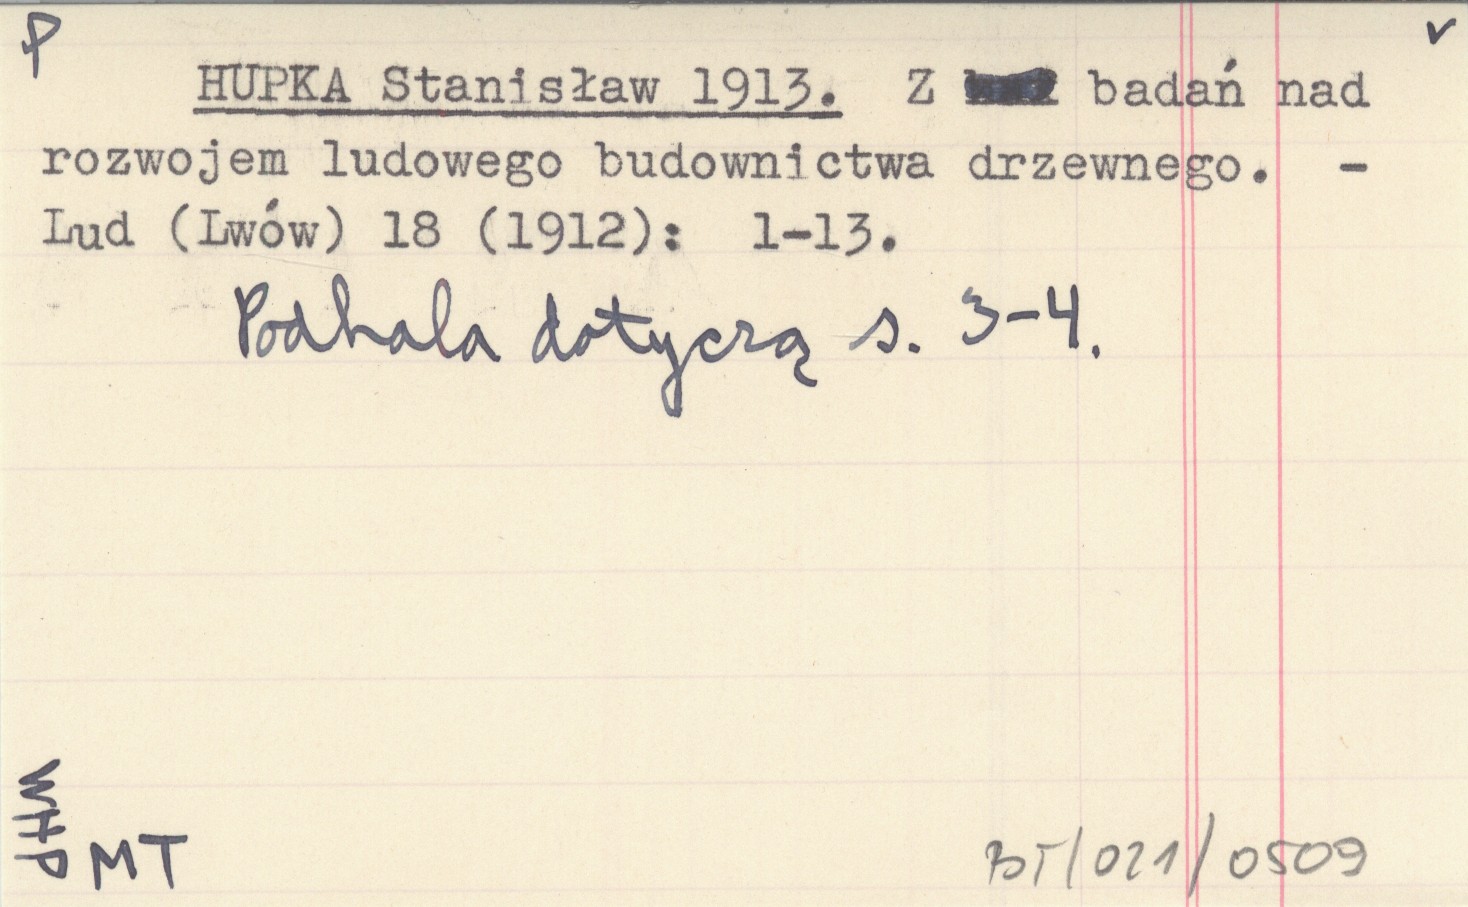 P
v
HUPKA Stanisław 1913. Z badań nad
rozwojem ludowego budownictwa drzewnego. -
Lud (Lwów) 18 (1912): 1-13.
Podhala dotyczą s. 3-4.
WHP
MT
BT/021/0509